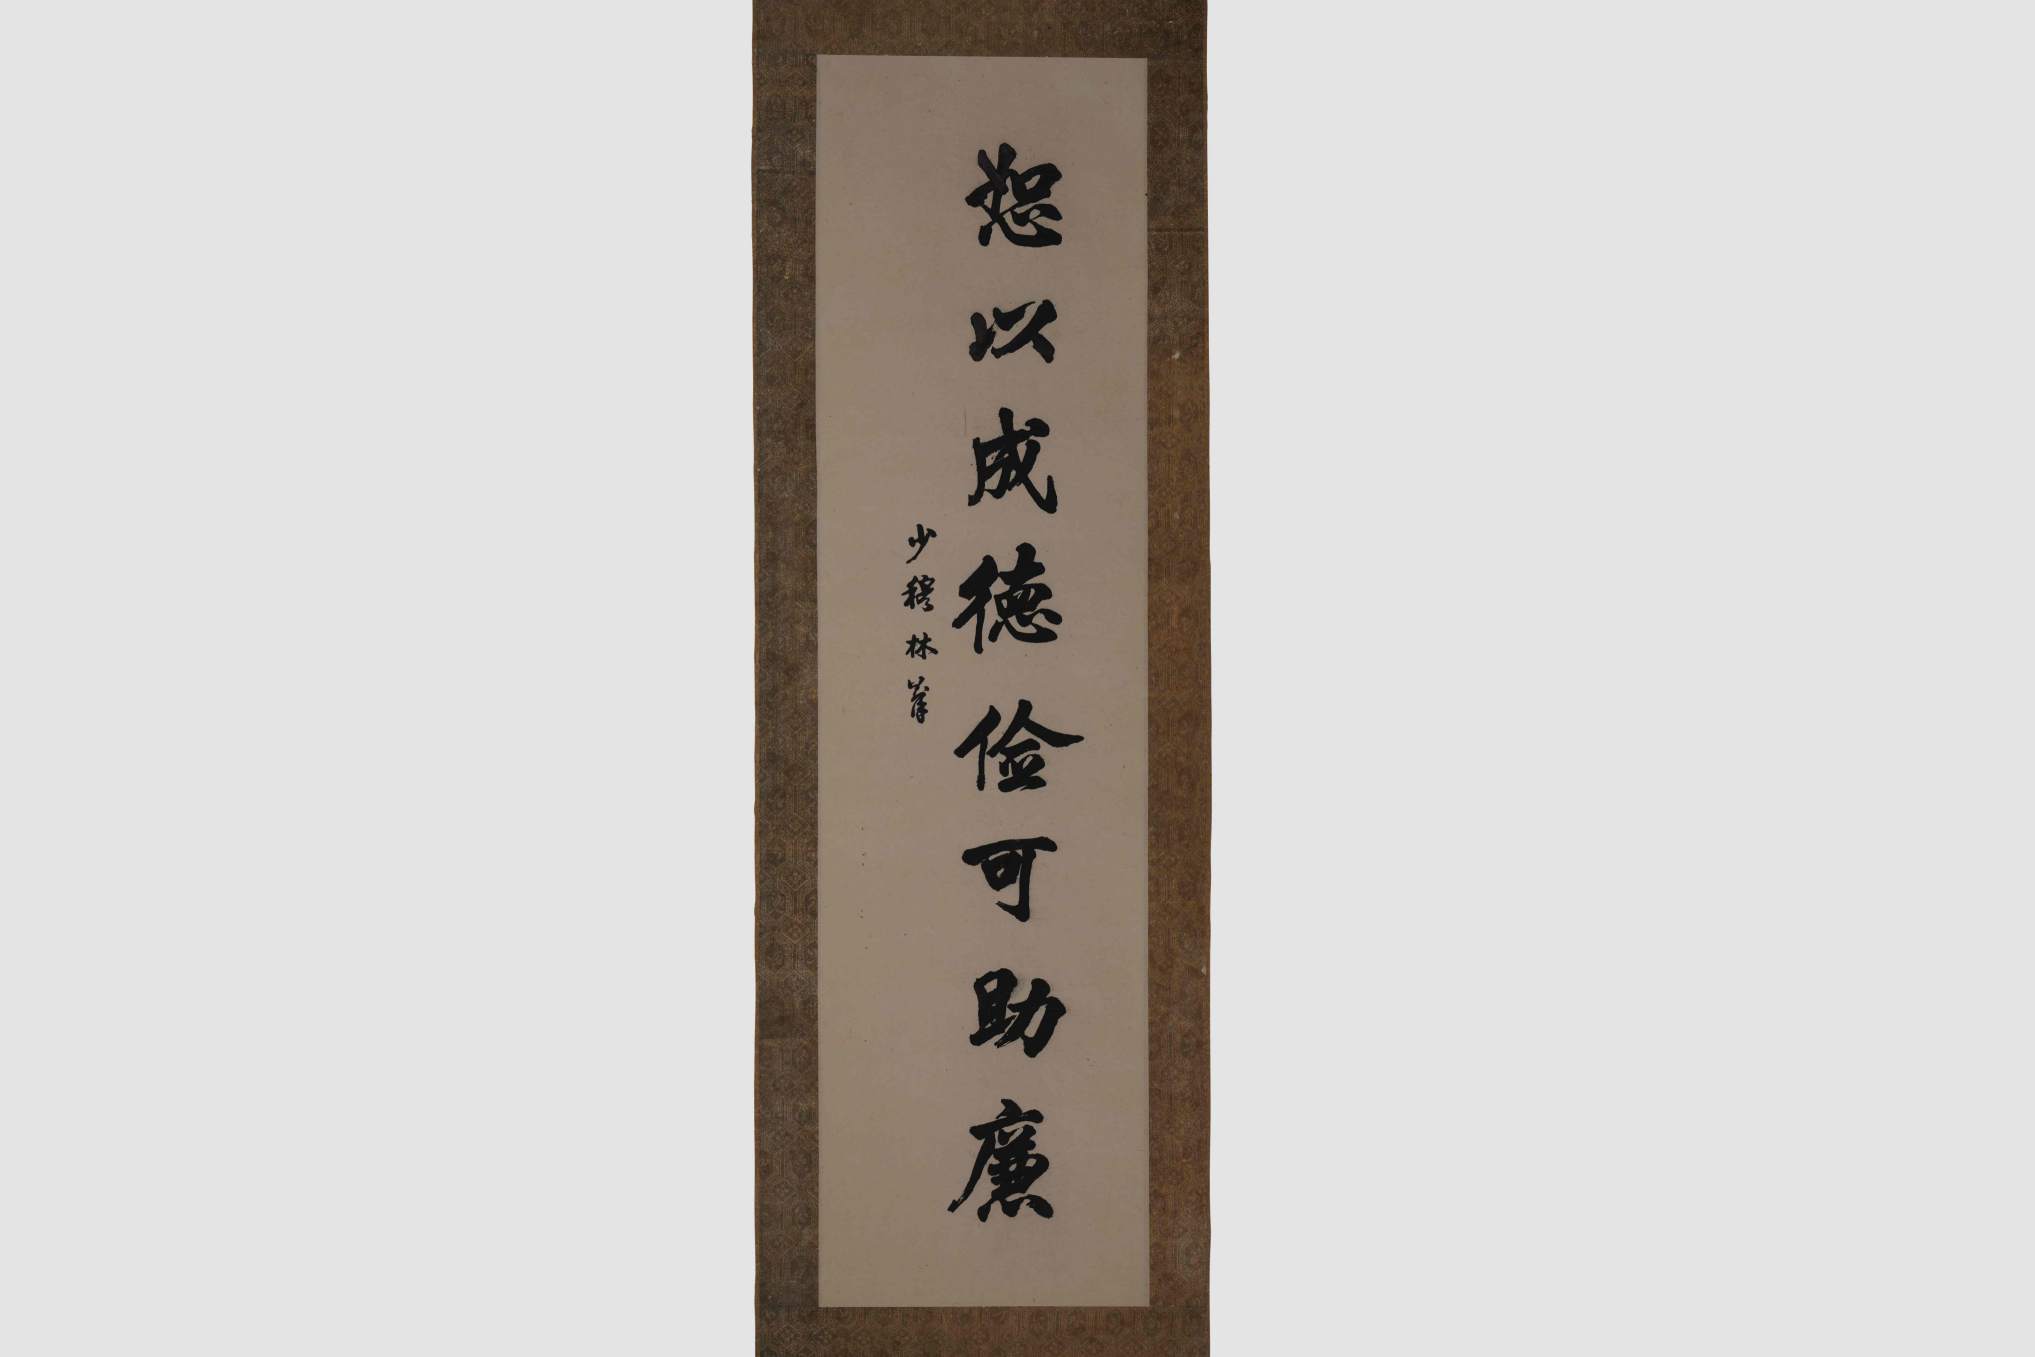 恕以成德儉可助廉
少穆林